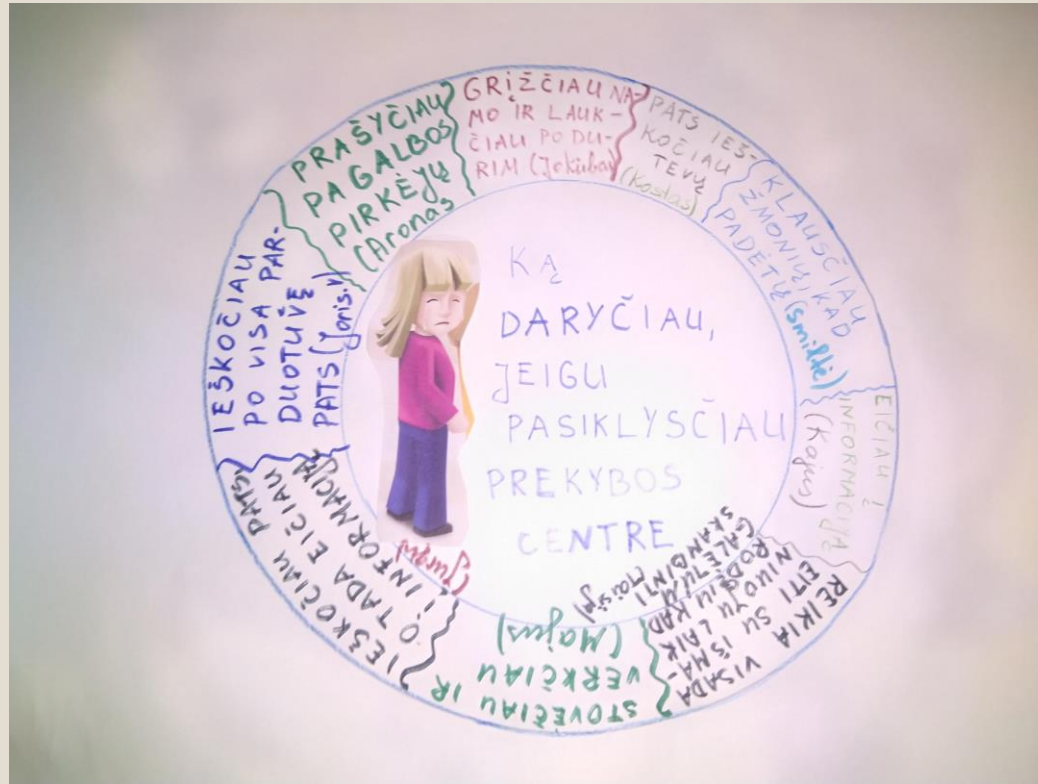 KĄ
DARYČIAU,
JEIGU
PASIKLYSČIAU
PREKYBOS
CENTRE
GRĮŽČIAU NA-
MO IR LAUK-
ČIAU PO DU-
RIM (Jokūbas)
PATS IEŠ-
KOČIAU
TĖVŲ
(Kostas)
KLAUSČIAU
ŽMONIŲ, KAD
PADĖTŲ (Smiltė)
EIČIAU Į
INFORMACIJĄ
(Kajus)
REIKIA VISADA
EITI SU IŠMA-
NIUOJU LAIK-
RODĖJU, KAD
GALĖTUM
SKAMBINTI
STOVĖČIAU IR
VERKČIAU
(Majus)
IEŠKOČIAU PATS,
O TADA EIČIAU
Į INFORMACIJĄ
IEŠKOČIAU
PO VISA PAR-
DUOTUVĘ
PATS (Joris.V)
PRAŠYČIAU
PAGALBOS
PIRKĖJŲ
(Aronas